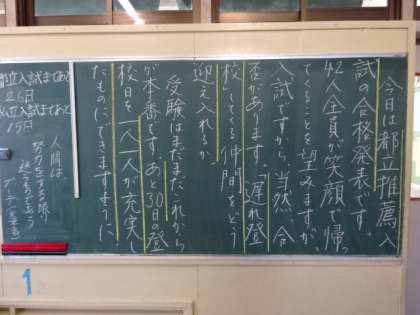 今日は都立推薦入
試の合格発表です。
42人全員が笑顔で帰っ
てくることを望みますが、
入試ですから、当然合
否があります。「遅れ登
校」してくる仲間をどう
迎え入れるか。
受験はまだまだこれから
が本番です。あと30日の登
校日を一人一人が充実し
たものにできますように!
都立入試まであと
26日
私立入試まであと
15日
人間は
努力をする限り
迷うものであろう
ゲーテ
1